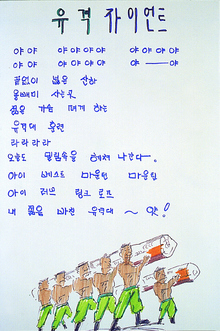 유격 자이언트
야야 야야야야 야야야야
야야 야야야야 야──야
끝없이 넓은 산하
올빼미 사는곳
젊은 가슴 뛰게 하는
유격대 훈련
라라라라
오늘도 밀림속을 헤쳐 나간다─.
아이 마운틴 마운틴
아이 러브 로프
내 젊음 바친 유격대 ~ 얏!